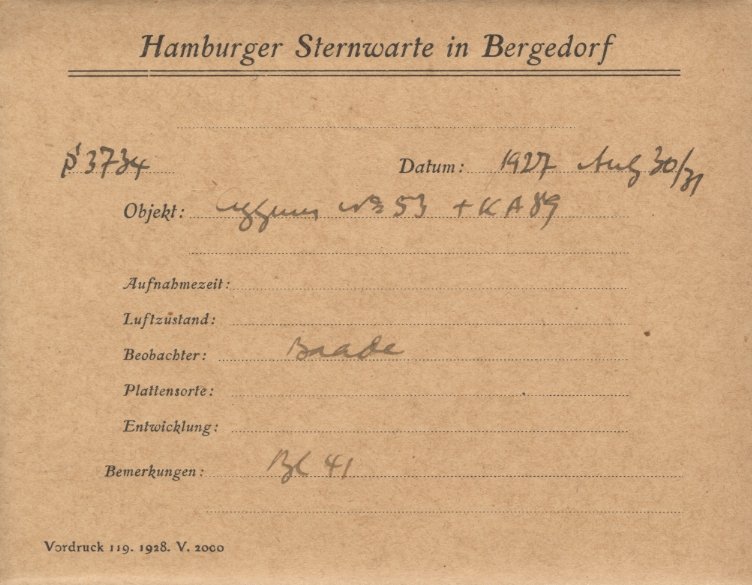 Hamburger Sternwarte in Bergedorf
3734 Datum: 1927 Aug 30/31
Objekt: 53 + KA 89
Aufnahmezeit:
Luftzüstand:
Beobachter: Baade
Plattensorte:
Entwicklung:
Bemerkungen: Bl 41
Vordruck 119. 1928. V. 2000